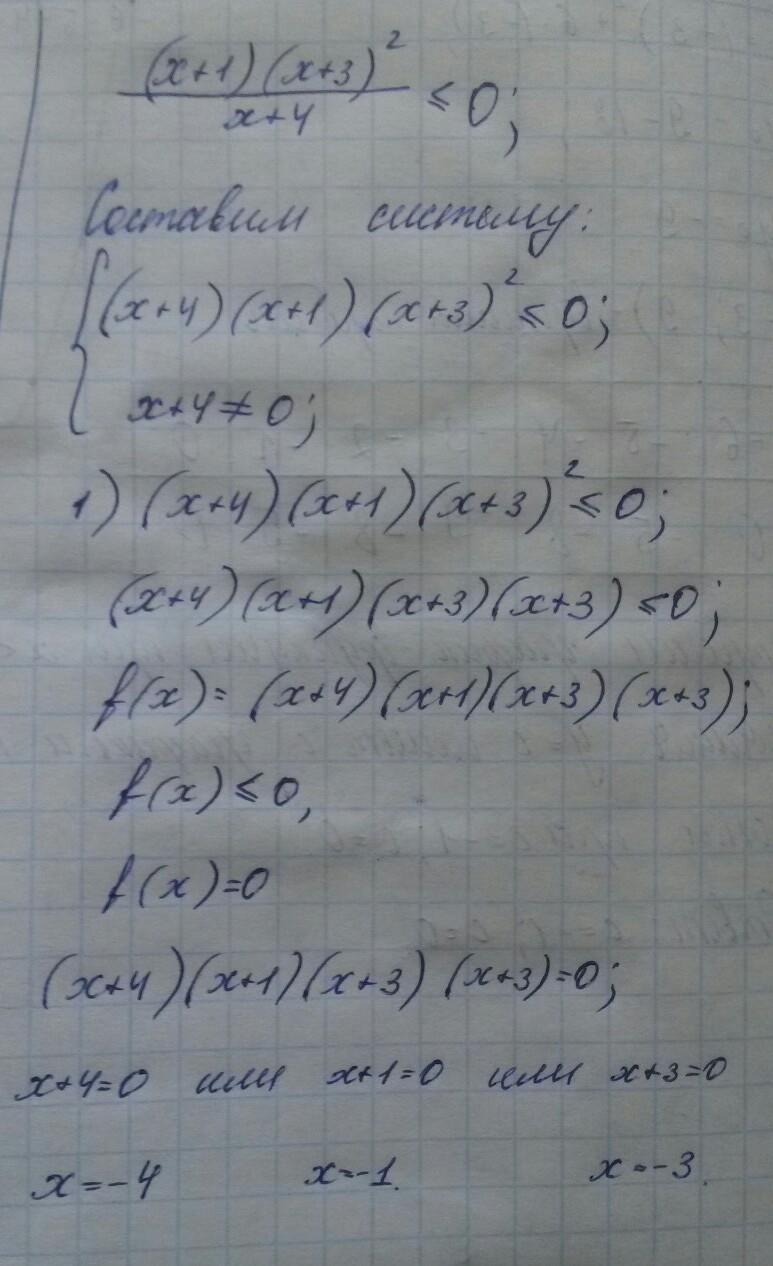 (x+1)(x+3)² / x+4 ≤ 0;
Составим систему:
{ (x+4)(x+1)(x+3)² ≤ 0;
x+4≠0;
1) (x+4)(x+1)(x+3)² ≤ 0;
(x+4)(x+1)(x+3)(x+3) ≤ 0;
f(x)= (x+4)(x+1)(x+3)(x+3);
f(x) ≤ 0,
f(x)=0
(x+4)(x+1)(x+3)(x+3)=0;
x+4=0 или x+1=0 или x+3=0
x=-4 x=-1. x=-3.